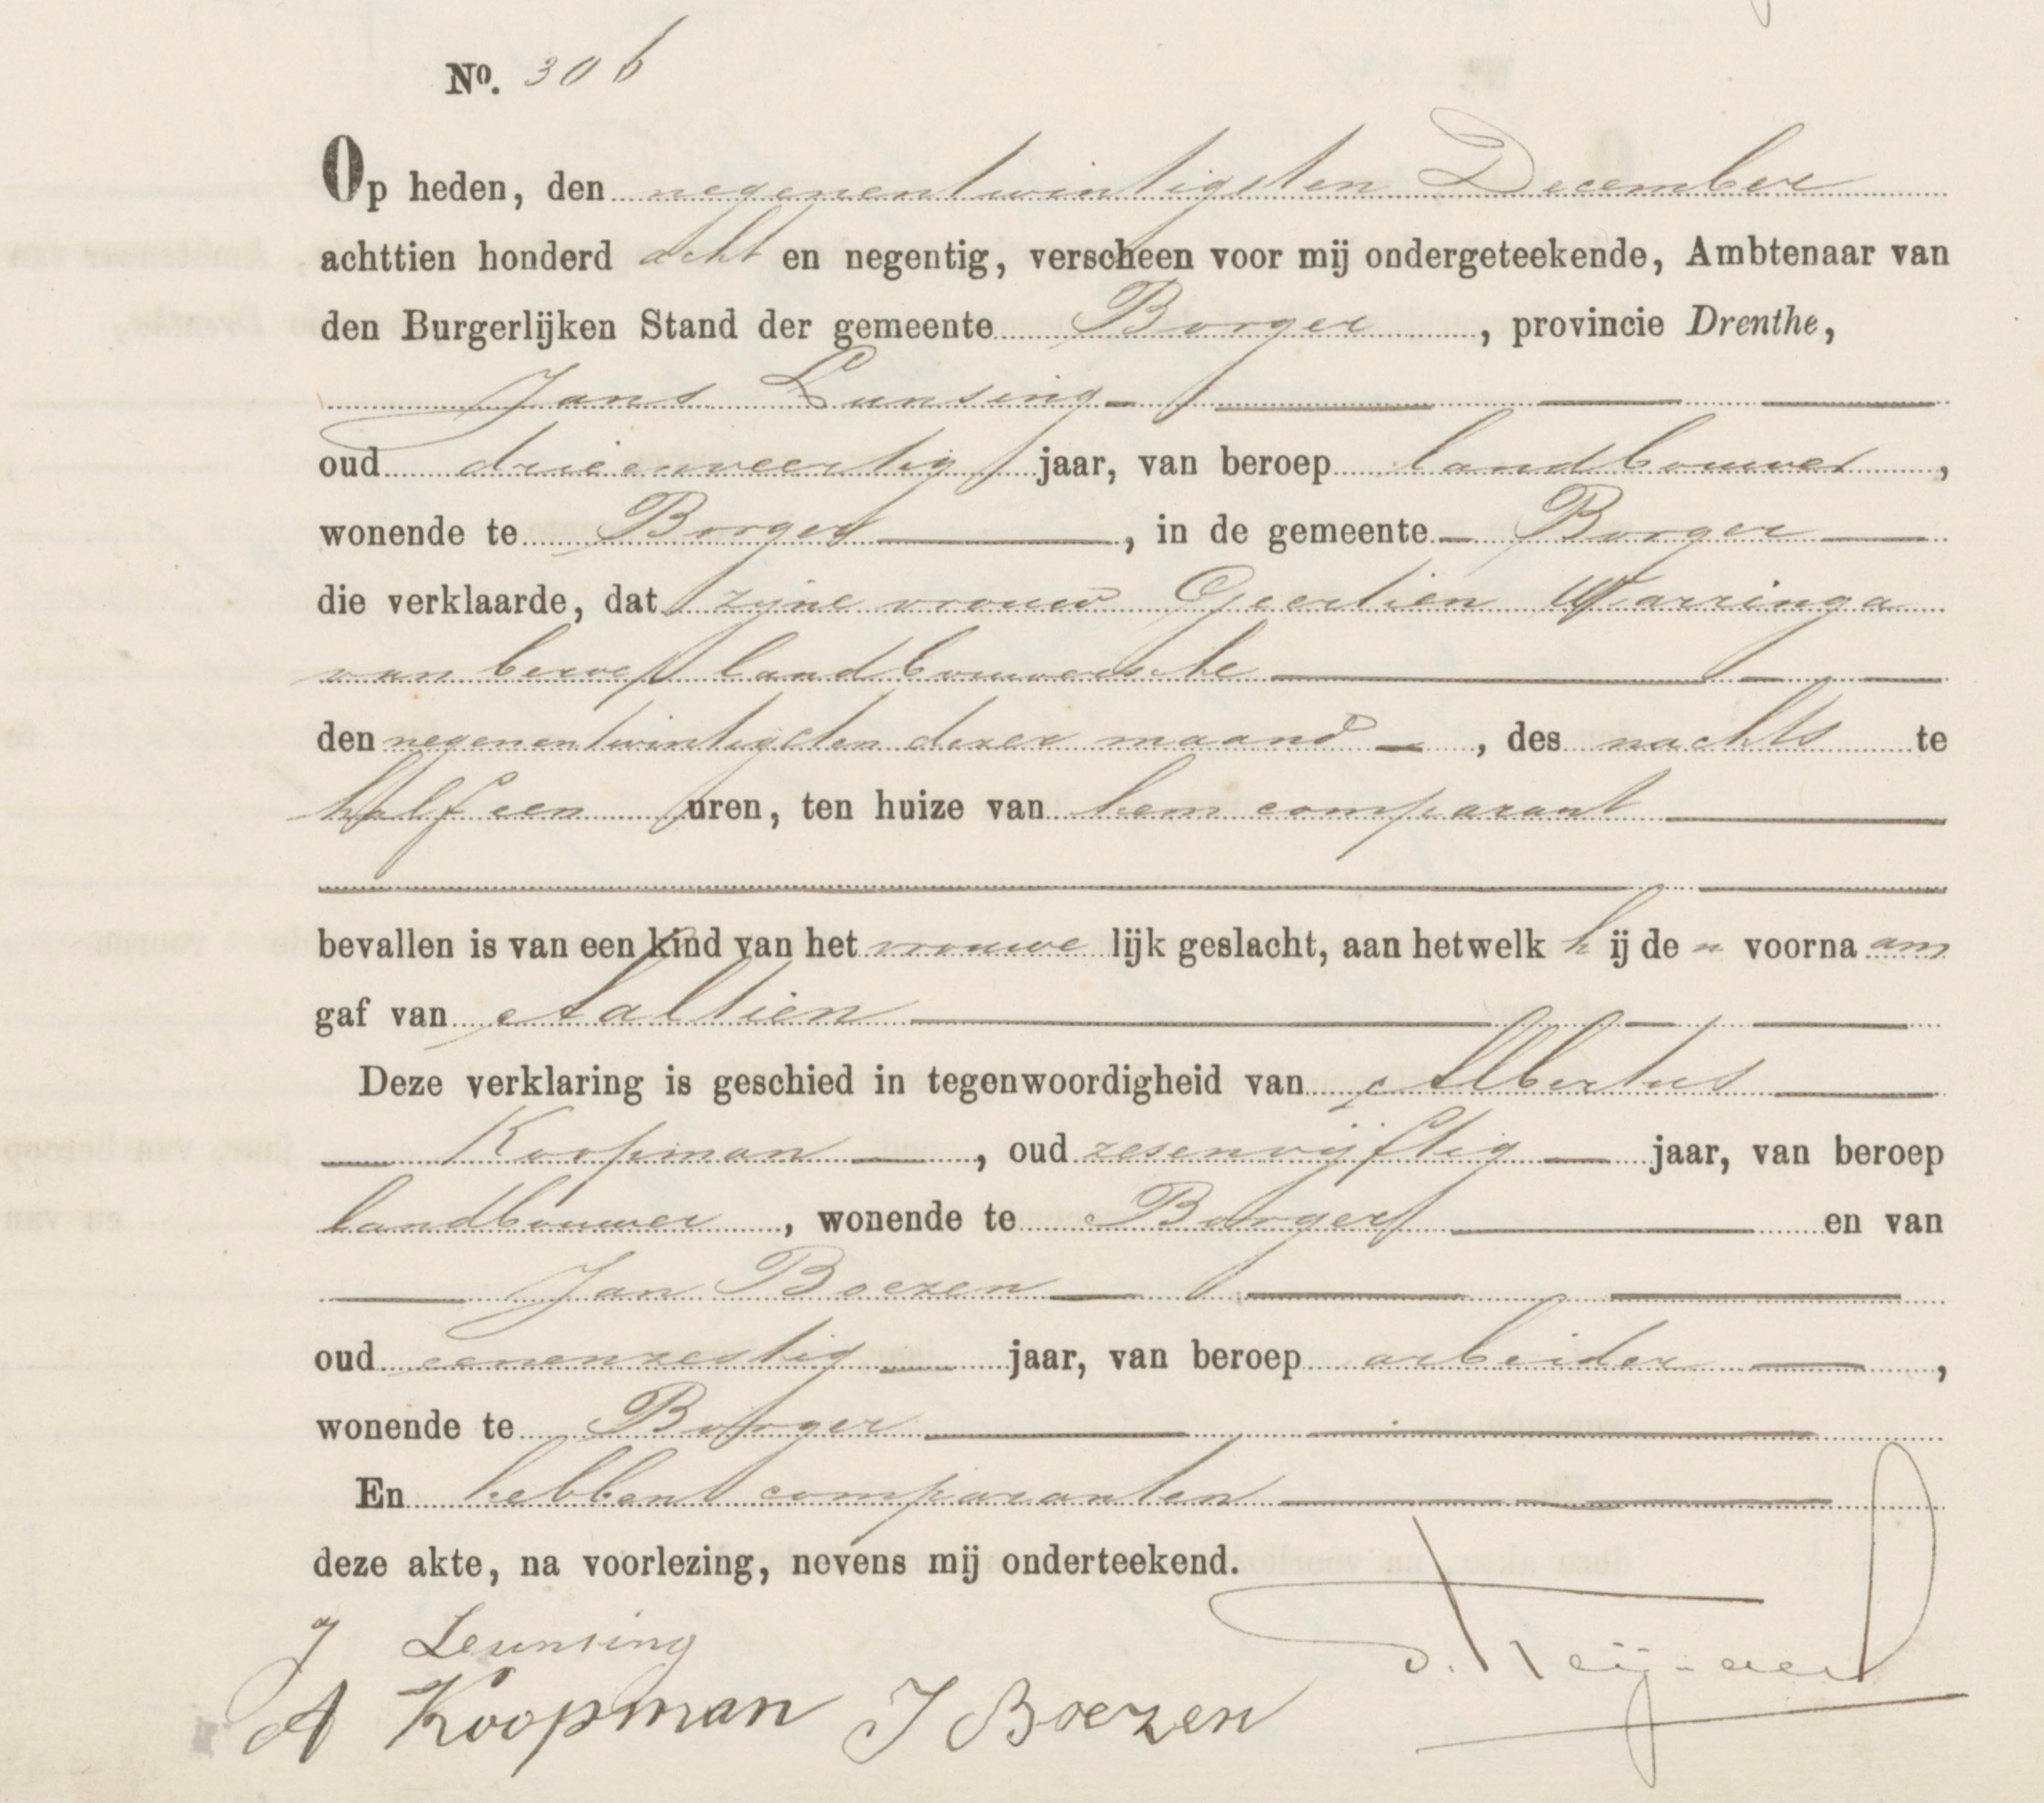 No. 306
Op heden, den negenentwintigsten December
achttien honderd acht en negentig, verscheen voor mij ondergeteekende, Ambtenaar van
den Burgerlijken Stand der gemeente Borger, provincie Drenthe,
Jans Lunsing
oud drieenveertig jaar, van beroep landbouwer,
wonende te Borger, in de gemeente Borger
die verklaarde, dat zijne vrouw Geertien Warringa
van beroep landbouwersche
den negenentwintigsten dezer maand, des nachts te
half een uren, ten huize van hem comparant
bevallen is van een kind van het vrouwelijk geslacht, aan hetwelk hij den voornaam
gaf van Aaltien
Deze verklaring is geschied in tegenwoordigheid van Albertus
Koopman, oud zesenvijftig jaar, van beroep
landbouwer, wonende te Borger en van
Jan Boezen
oud eenenzestig jaar, van beroep arbeider,
wonende te Borger
En hebben comparanten
deze akte, na voorlezing, nevens mij onderteekend.
J Leunsing
A Koopman J Boezen